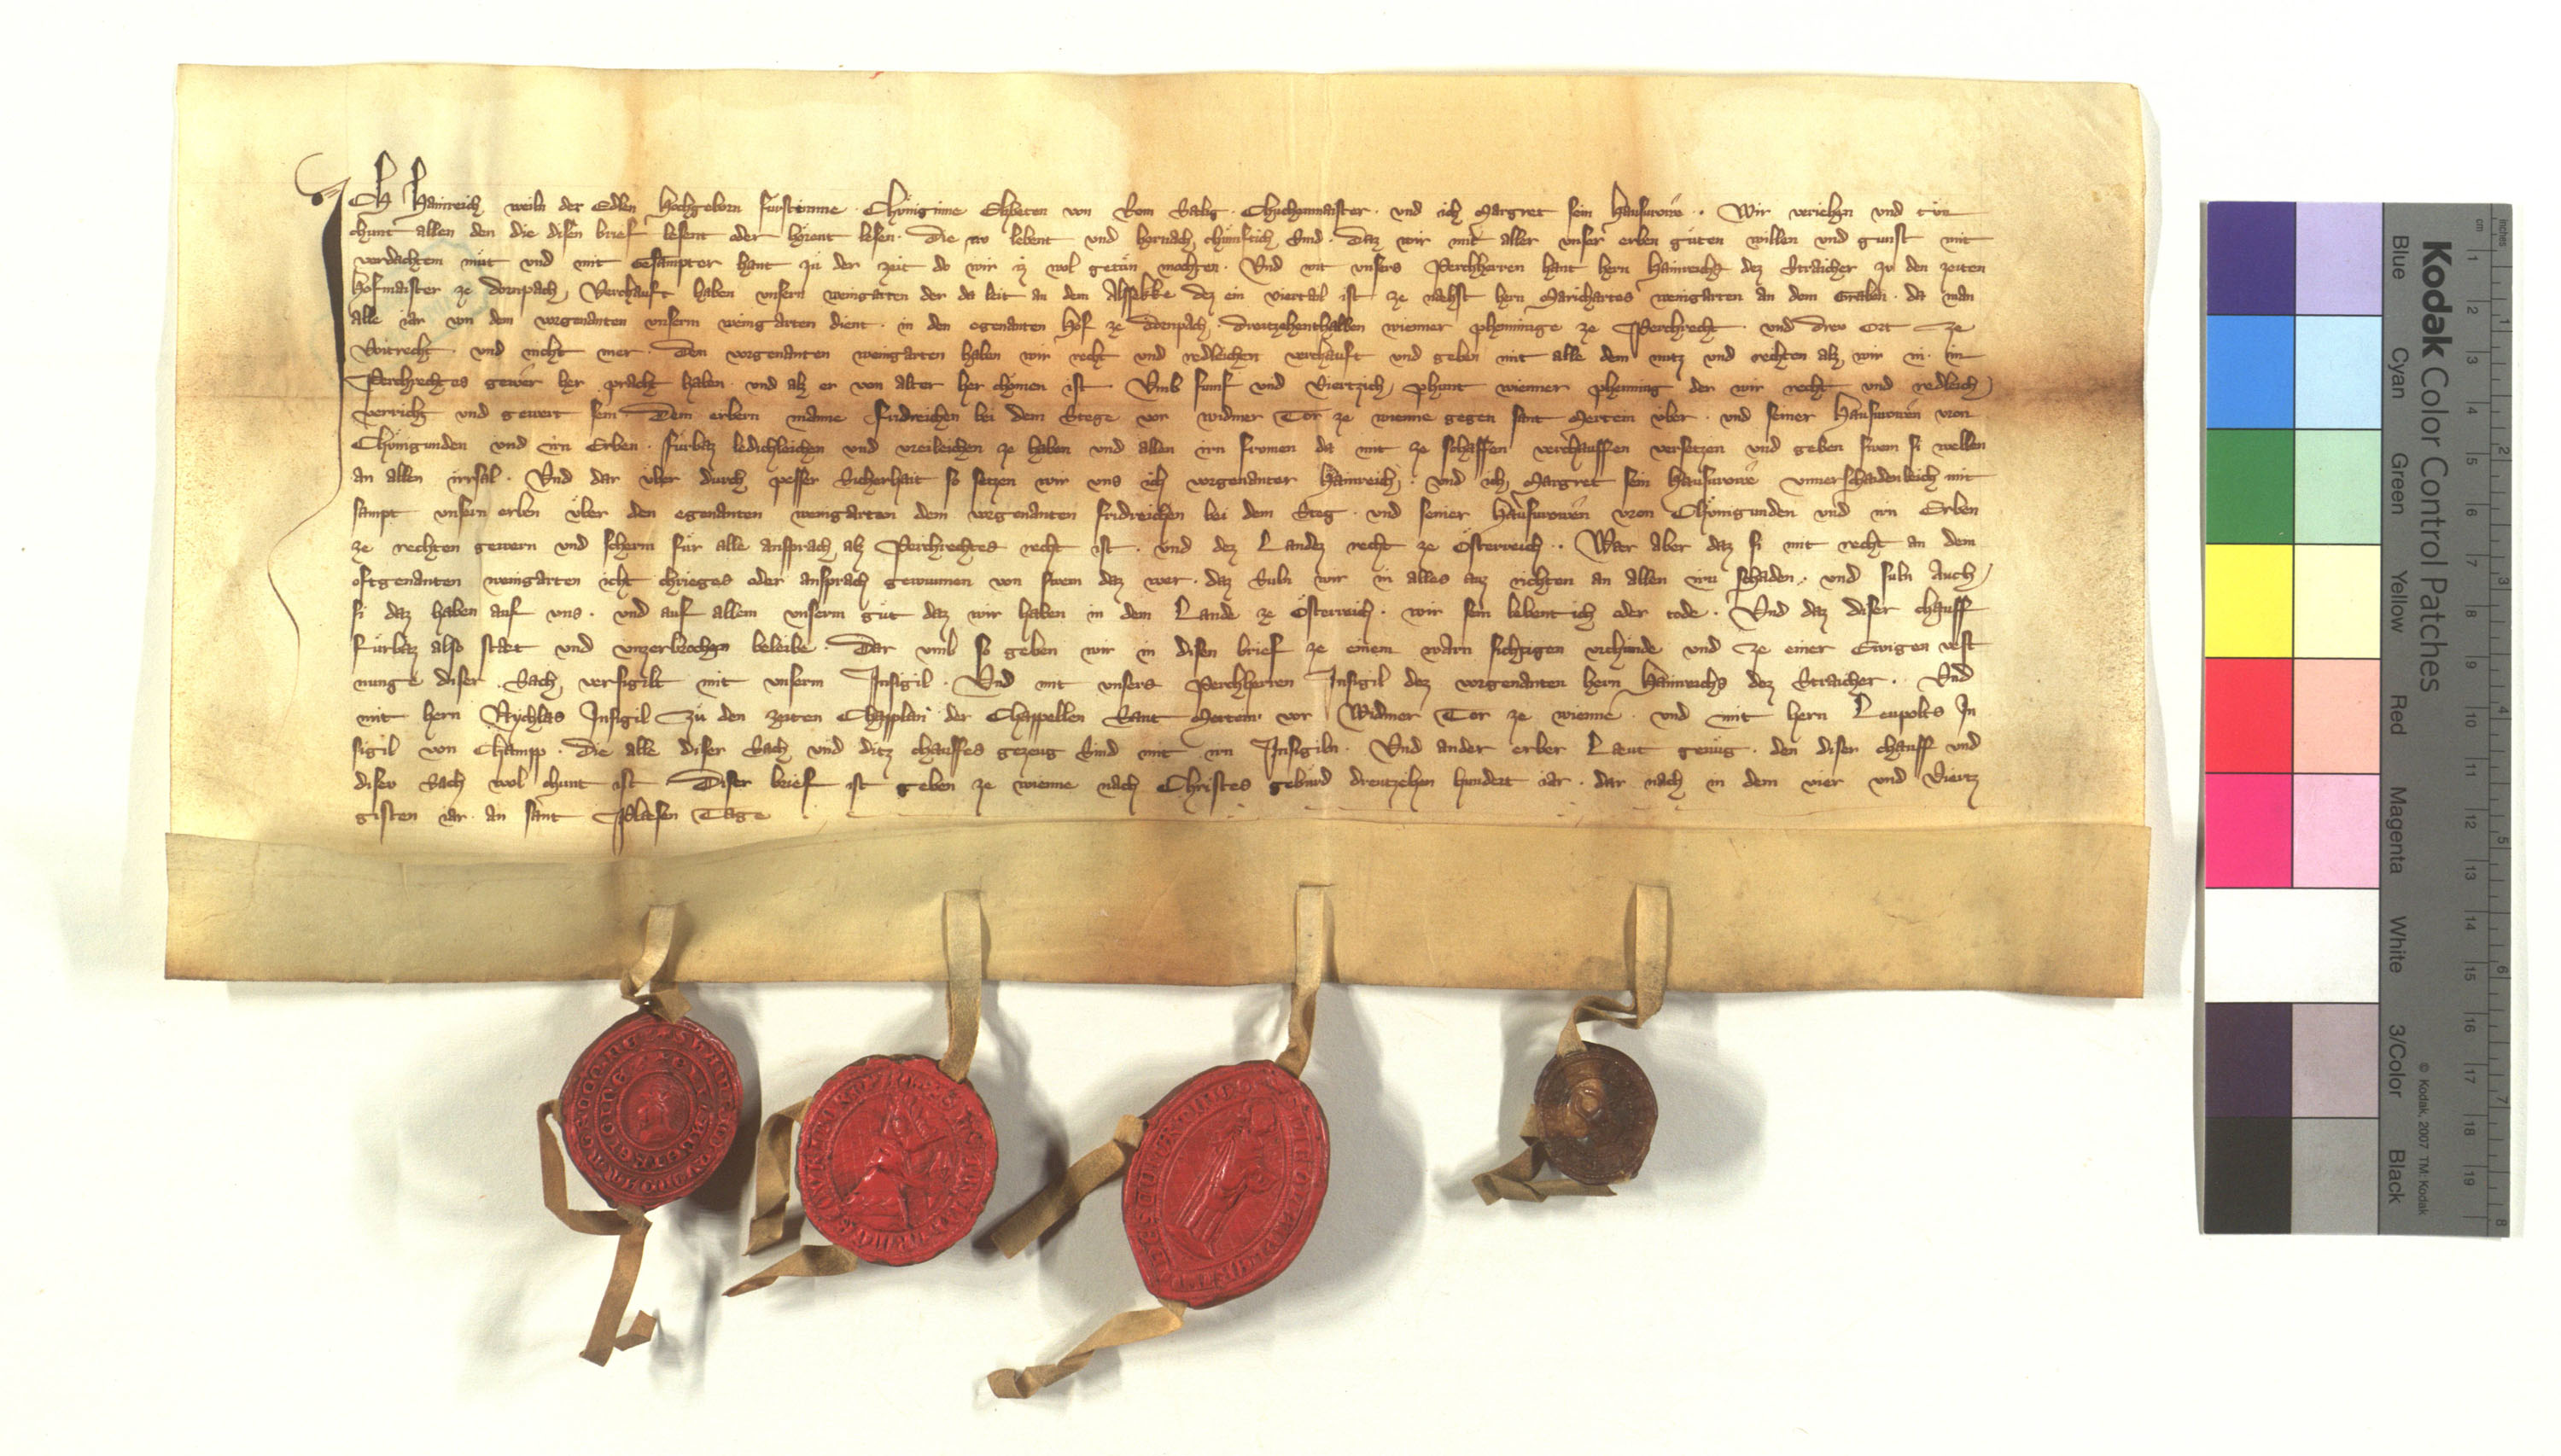 Ich Hainreich weiln der Edlen Hochgeborn fürstinne Chüniginne Elzbeten von Rom Salig Chuchenmaister und ich Margret sein Hausurowe Wir veriehen und tün
chunt allen den die disen brief lesent oder hörent lesen die nv lebent und hernach chümftich Sind Daz wir mit aller unser erben güten willen und gunst mit
verdachtem müt und mit Gesampter hant zü der zeit do wir iz wol getün mochten Vnd mit unsers Perchherren hant hern Hainreichs dez Straicher zv den zeiten
Hofmaister ze dornpach Verchauft haben unsern weingarten der da leit an dem Alssekke dez ein viertail ist ze nahst hern Marichartes weingarten an dem Graben da man
alle iar von dem vorgenanten unserm weingarten dient in den egenanten Hof ze dornpach dreutzehenthalben wienner phenninge ze Perchrecht und drev ort ze
Voitrecht und nicht mer Den vorgenanten weingarten haben wir recht und redleichen verchauft und geben mit alle dem nutz und rechten alz wir in in
Perchrechtes gewer her pracht haben und alz er von alter her chomen ist Vmb fumf und Viertzich phunt wienner phenning der wir recht und redleich
verricht und gewert sein Dem erbern manne Fridreichen bei dem Stege vor widmer Tor ze wienne gegen sant Mertein über und seiner Hausurowen vron
Chünigunden und irn Erben fürbaz ledichleichen und vreileichen ze haben und allen irn frumen da mit ze schaffen verchauffen versetzen und geben swem si wellen
an allen irrsal Vnd dar über durch pesser Sicherhait so setzen wir uns ich vorgenanter Hainreich und ich Margret sein Hausurowe unuerschaidenleich mit
sampt unsern erben über den egenanten weingarten dem vorgenanten fridreichen bei dem Steg und seiner Hausurowen vron Chünigunden und irn Erben
ze rechten gewern und scherm für alle ansprach alz Perchrechtes recht ist und dez Landez recht ze Österreich Wær aber daz si mit recht an dem
oftgenanten weingarten icht chrieges oder ansprach gewunnen von swem daz wer daz Suln wir in alles auz richten an allen irn schaden und suln Auch
si daz haben auf uns und auf allem unserm güt daz wir haben in dem Lande ze Österreich wir sein lebentich oder tode Vnd daz diser chauff
fürbaz also stæt und unzerbrochen beleibe Dar umb so geben wir in disen brief ze einem warn sichtigen vrchünde und ze einer Ewigen vest
nunge diser Sach versigilt mit unserm Insigil Vnd mit unsers Perchherren Insigil dez vorgenanten hern Hainreichs dez Straicher Vnd
mit hern Nychlas Insigil zü den zeiten Chapplan der Chappellen Sant Mertein vor Widmer Tor ze wienne und mit hern Leupolts In
sigil von Champp die alle diser Sach und ditz chauffes gezeug Sind mit irn Insigiln Vnd ander erber Læut genüg den diser chauff und
diser Sach wol chunt ist Diser brief ist geben ze wienne nach Christes gebürd dreutzehen hundert iar dar nach in dem vier und Viertz
gisten iar an sant Blæsen Tage
Kodak Color Control Patches
© Kodak, 2007 TM: Kodak
Blue Cyan Green Yellow Red Magenta White 3/Color Black
cm 1 2 3 4 5 6 7 8 9 10 11 12 13 14 15 16 17 18 19
Inches 1 2 3 4 5 6 7 8